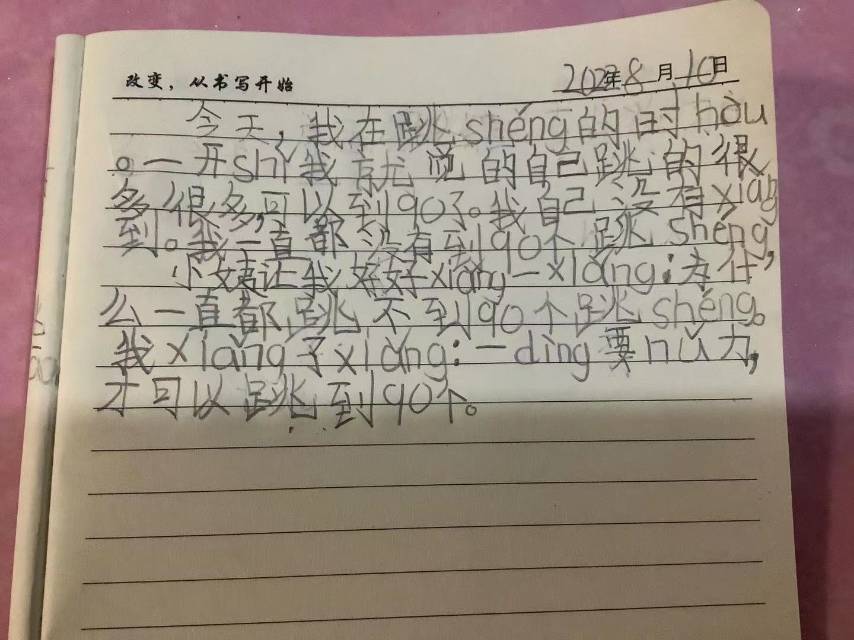 改变，从书写开始
2022年8月10日
今天，我在跳shéng的时hòu
。一开shǐ我就觉的自己跳的很
多很多,可以到90了。我自己没有xiǎng
到。我一直都没有到90个跳shéng,
小姨让我好好xiǎng一xiǎng：为什
么一直都跳不到90个跳shéng。
我xiǎng了xiǎng：一dìng要nǔ力，
才可以跳到90个。